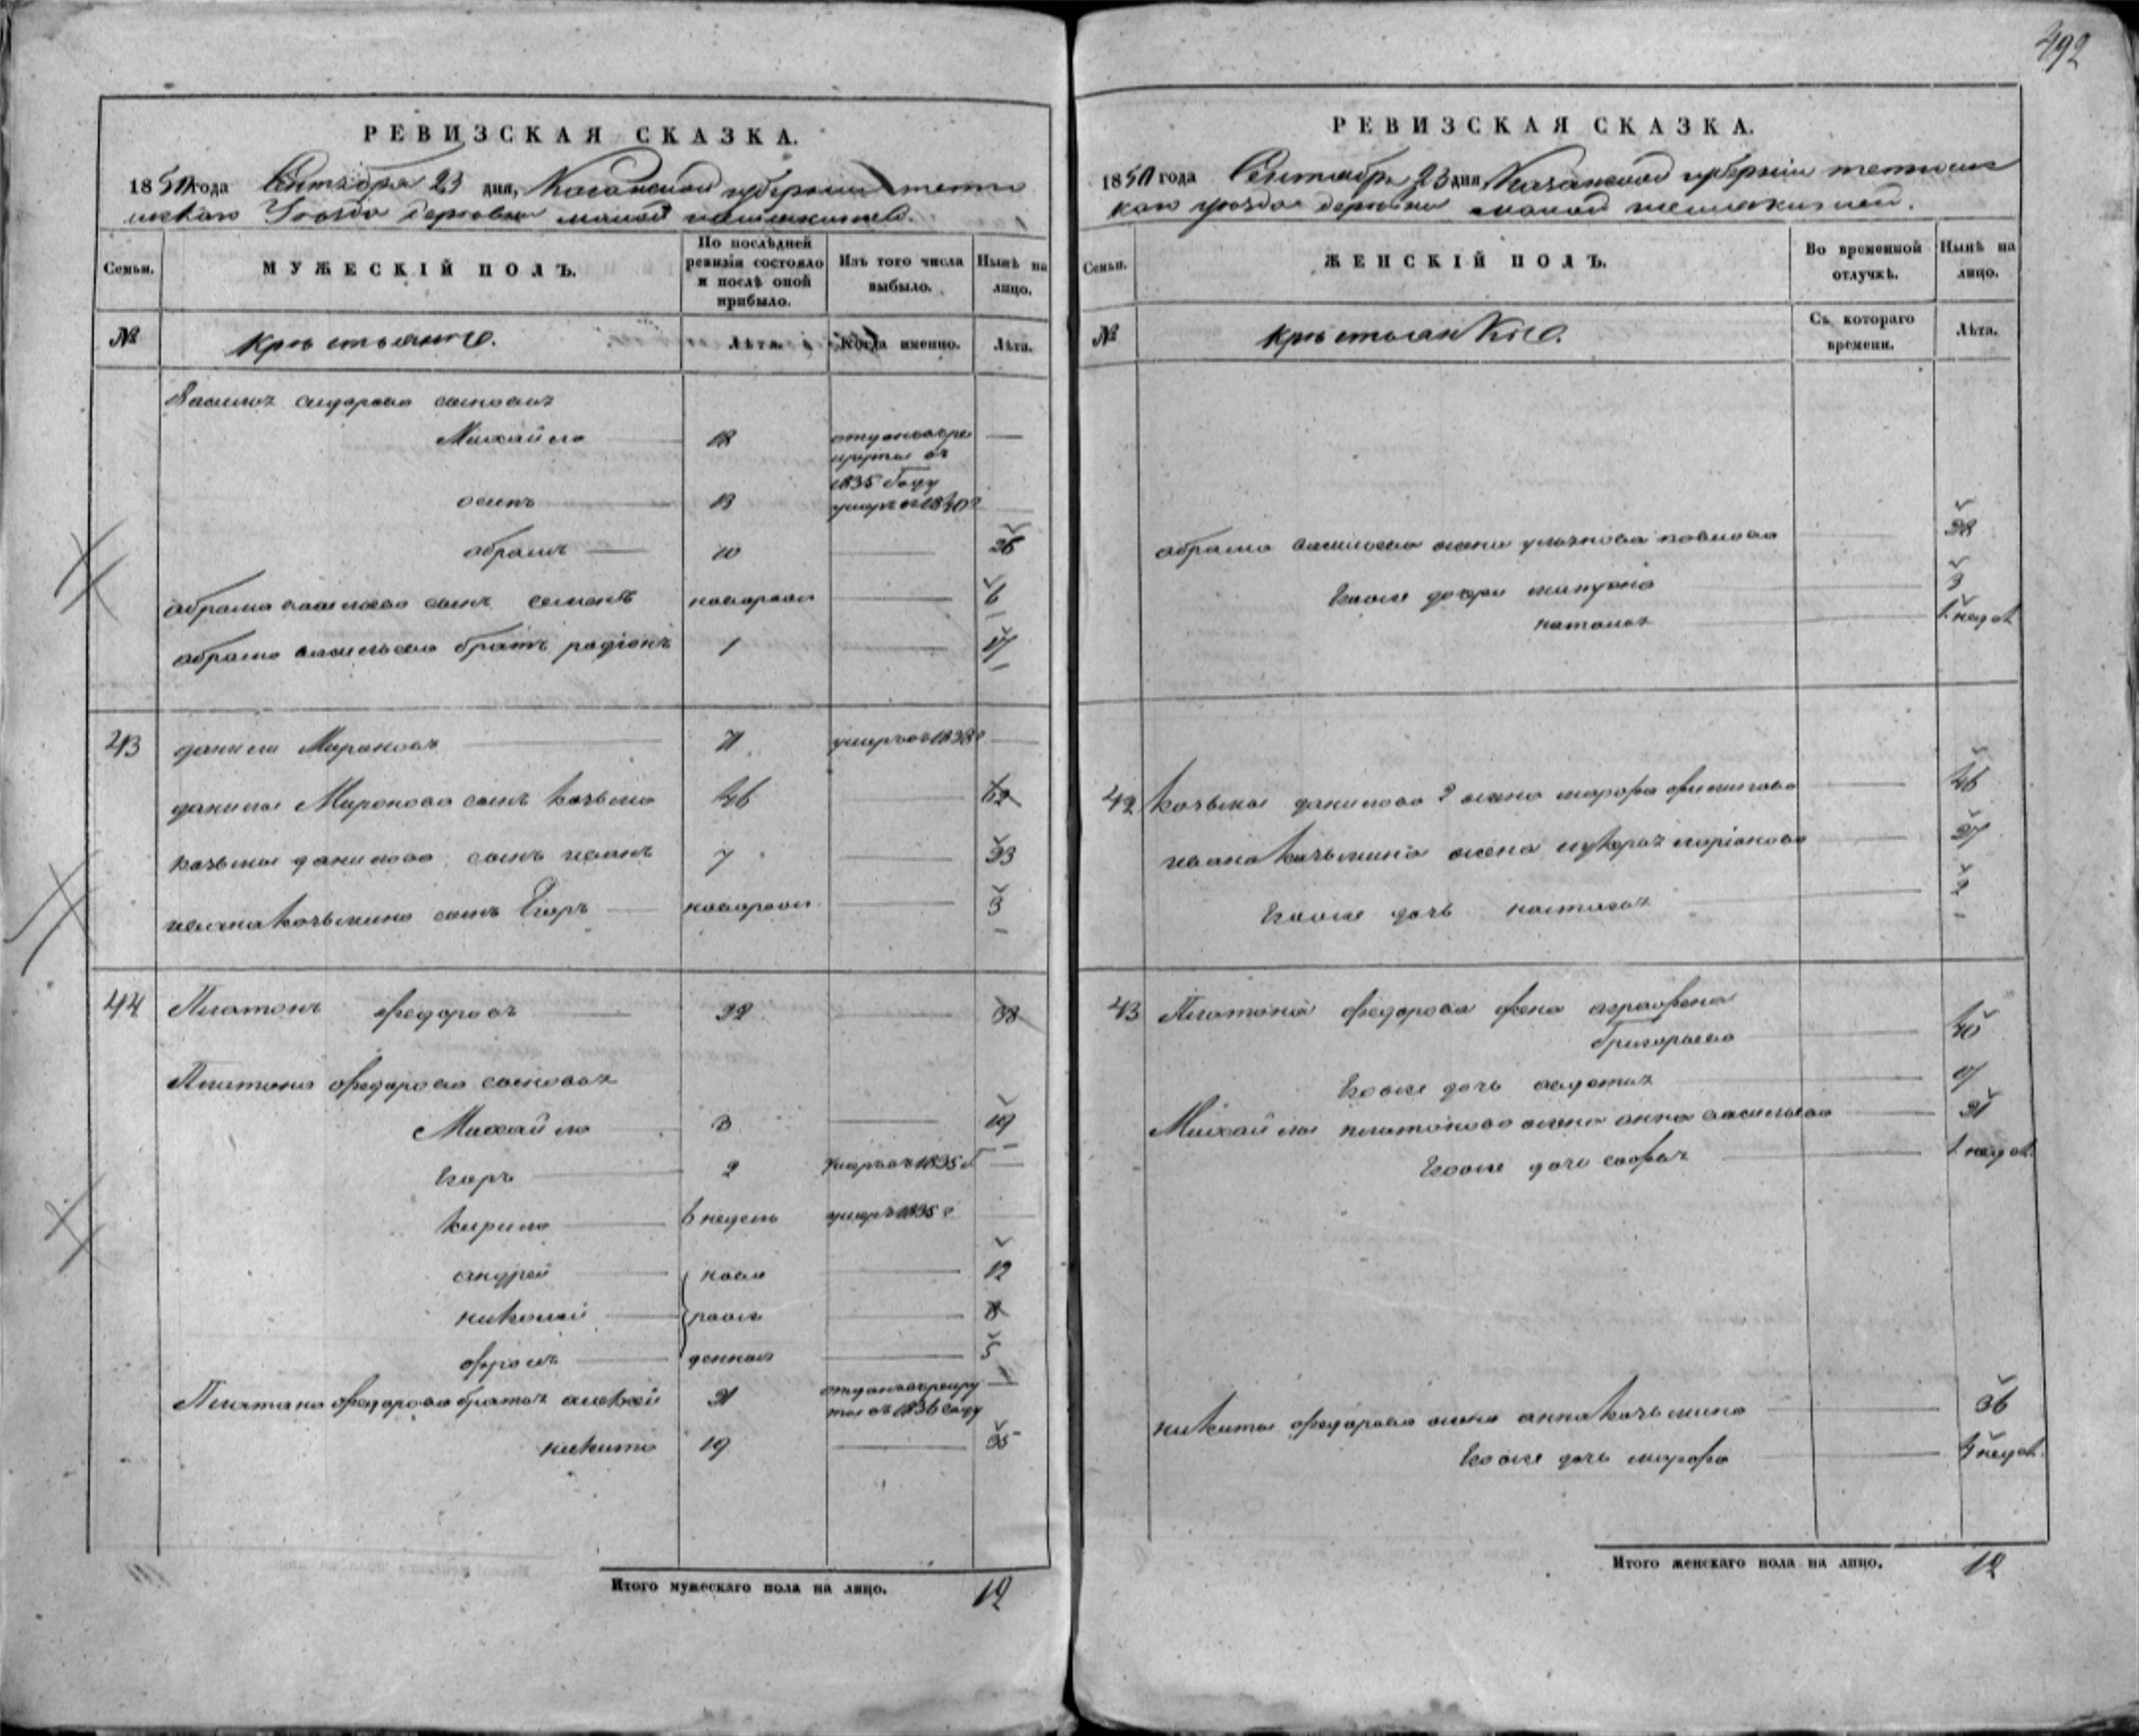 492
РЕВИЗСКАЯ СКАЗКА.
1850 года Сентября 23 дня, Казанской губернии тетю
шскаго Уезда деревни малой
Семьи.
МУЖЕСКІЙ ПОЛЪ.
По послѣдней ревизіи состояло и послѣ оной прибыло.
Изъ того числа выбыло.
Нынѣ на лицо.
№
крестьяне.
Лѣта.
Когда именно.
Лѣта.
Василья сидорова сыновья
Михайло 18 отданъ въ ре
круты въ
1835 году
осипъ 13 умеръ въ 1840 г
абрамъ 10 26
абрама васильева сынъ семенъ новорож 6
абрама васильева братъ радіонъ 1 17
43 данила Мироновъ 71 умеръ въ 1838 г
данилы Миронова сынъ козьма 46 62
козьмы данилова сынъ иванъ 7 23
ивана козьмина сынъ Егоръ новорож 3
44 Платонъ федоровъ 22 38
Платона федорова сыновья
Михайло 3 19
Егоръ 2 умеръ въ 1835 г
кирило 6 недель умеръ 1835 г
андрей ново 12
николай рож 8
фролъ денные 5
Платона федорова братья алексей 21 отданъ въ рекру
ты въ 1836 году
никита 19 35
Итого мужескаго пола на лицо. 12
РЕВИЗСКАЯ СКАЗКА.
1850 года Сентября 23 дня Казанской губерніи тетюшс
каго уезда деревни малой
Семьи.
ЖЕНСКІЙ ПОЛЪ.
Во временной отлучкѣ.
Нынѣ на лицо.
№
крестьянки.
Съ котораго времени.
Лѣта.
абрама васильева жена павлова 28
Ево же дочери 3
наталья 1 недел
42 козьмы данилова 2 жена марфа филипова 46
ивана козьмина жена ларіонова 27
Ево же дочь настасья 2
43 Платона федорова жена аграфена
Григорьева 40
Ево же дочь авдотья 9
Михайлы платонова жена анна васильева 21
Ево же дочь софья 1 недел
никиты федорова жена анна козьмина 36
Ево же дочь марфа 4 недел
Итого женскаго пола на лицо. 12